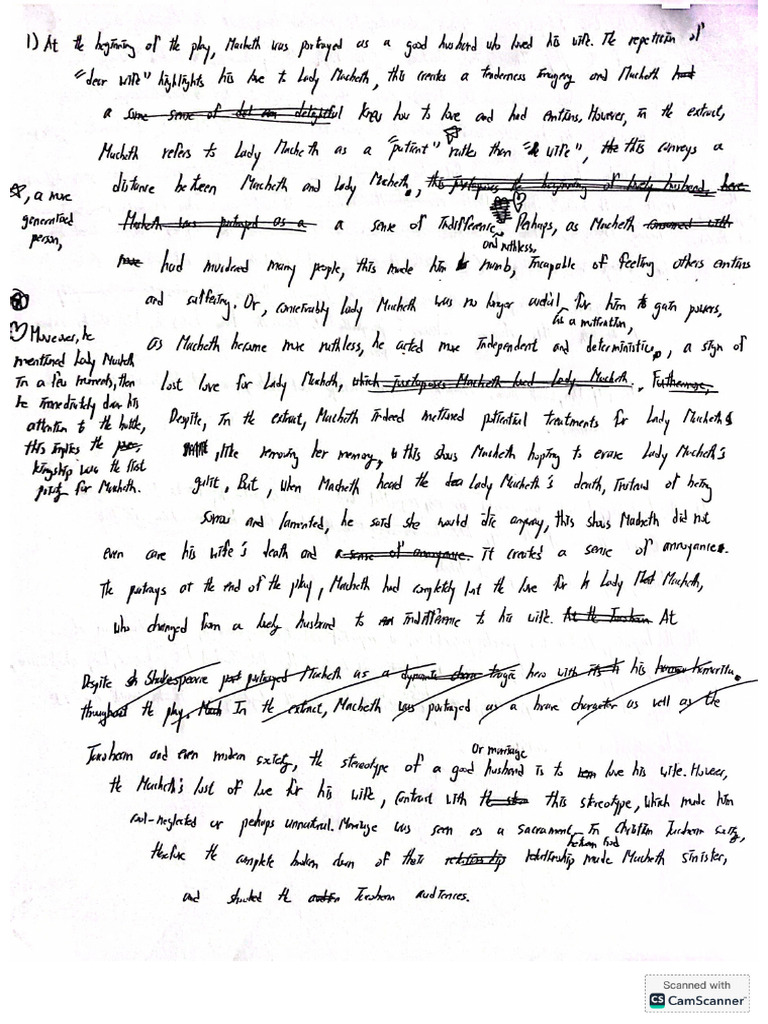 1) At the beginning of the play, Macbeth was portrayed as a good husband who loved his wife. The repetition of
"dear wife" highlights his love to Lady Macbeth, this creates a tenderness imagery and Macbeth had
a some sense of delightful knew how to love and had emotions. However, in the extract,
Macbeth refers to Lady Macbeth as a "patient" rather than "wife", the this conveys a
distance between Macbeth and Lady Macbeth, this juxtaposes the beginning of lovely husband, here
☆, a more
generalised
person,
Macbeth was portrayed as a a sense of indifference. Perhaps, as Macbeth consumed with
had murdered many people, this made him numb, incapable of feeling others emotions
and ruthless,
and suffering. Or, conceivably Lady Macbeth was no longer useful for him to gain powers,
as a motivation,
as Macbeth became more ruthless, he acted more independent and deterministic, a sign of
lost love for Lady Macbeth, which juxtaposes Macbeth loved Lady Macbeth. Furthermore,
♡ Moreover, he
mentioned Lady Macbeth
in a few moments, then
he immediately draw his
attention to the battle,
this implies the
kingship was the first
priority for Macbeth.
Despite, in the extract, Macbeth indeed mentioned potential treatments for Lady Macbeth
, like removing her memory, this shows Macbeth hoping to erase Lady Macbeth's
guilt, But, when Macbeth heard the Lady Macbeth's death, instead of being
sorrow and lamented, he said she would die anyway, this shows Macbeth did not
even care his wife's death and a sense of annoyance. It creates a sense of annoyance.
The portrays at the end of the play, Macbeth had completely lost the love for Lady Macbeth,
who changed from a lovely husband to indifference to his wife. At the Jacobean At
Despite Shakespeare portrayed Macbeth as a dynamic tragic hero with its his hamartia.
throughout the play. In the extract, Macbeth was portrayed as a brave character as well as the
Jacobean and even modern society, the stereotype of a good husband is to love his wife. However,
or marriage
the Macbeth's lost of love for his wife, contrast with this stereotype, which made him
cool-neglected or perhaps unnatural. Marriage was seen as a sacrament in Christian Jacobean society,
between God
therefore the complete broken down of their relationship relationship made Macbeth sinister,
and shocked the Jacobean audiences.
Scanned with
CS CamScanner